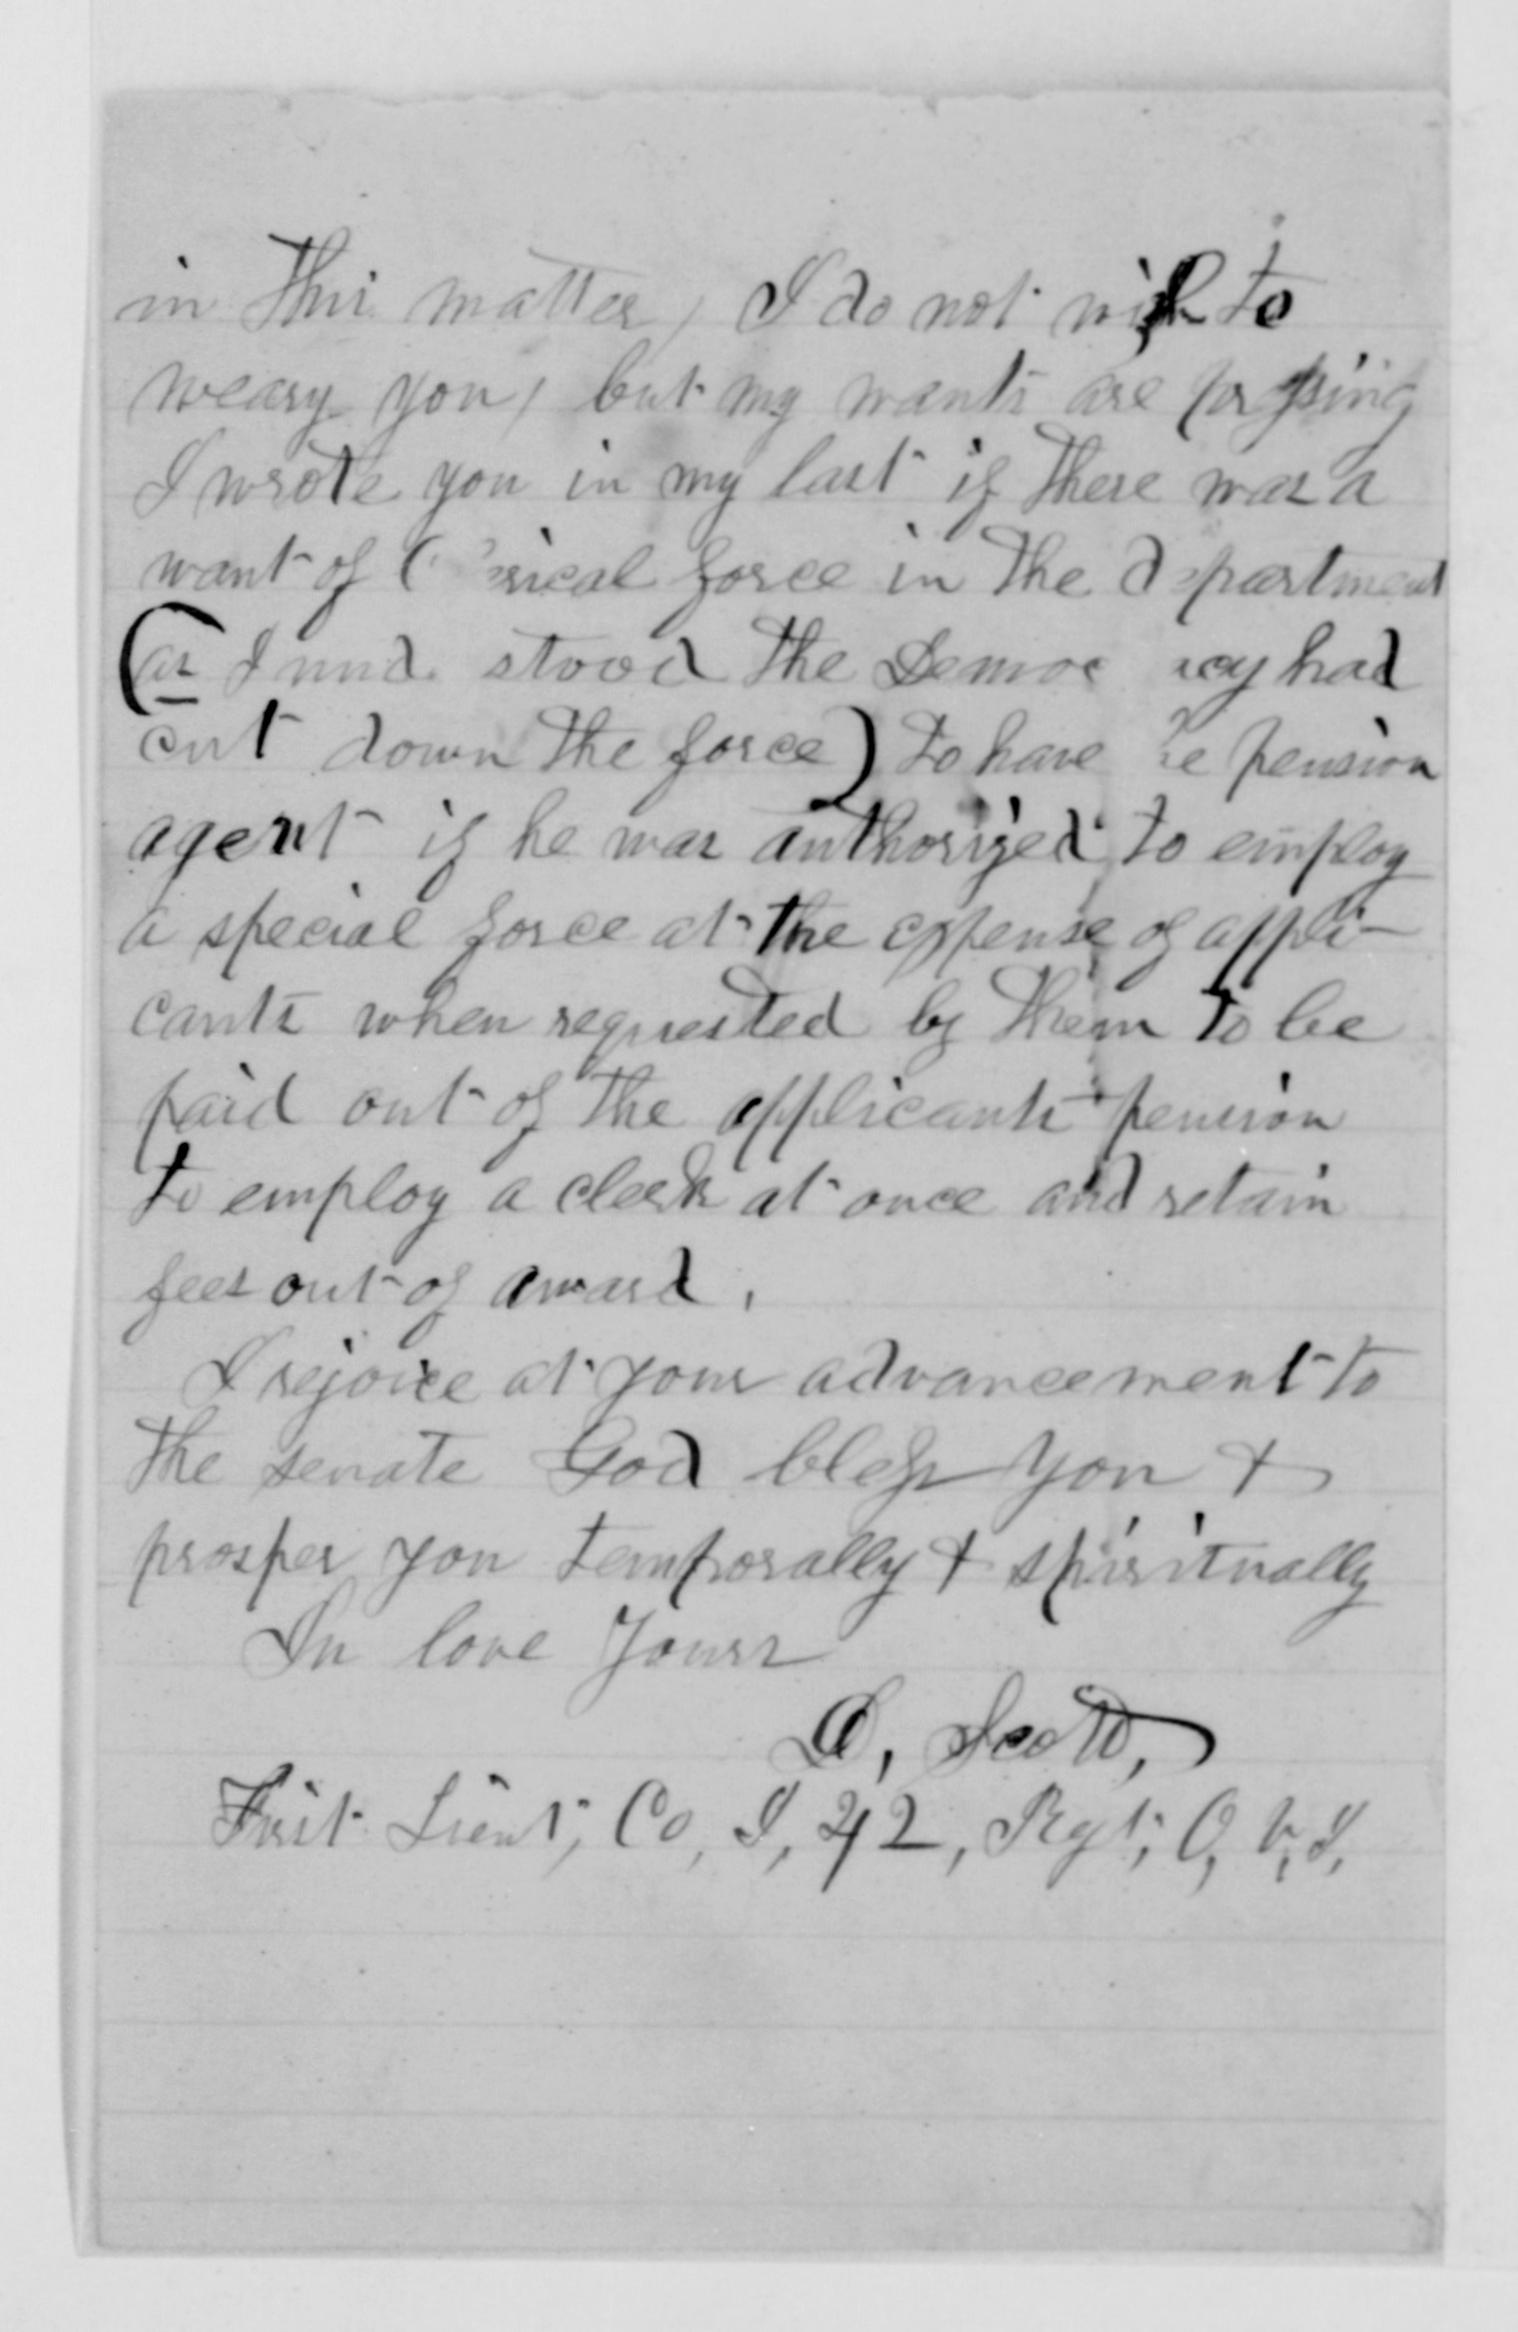 in this matter, I do not wish to
weary you, but my wants are pressing
I wrote you in my last if there was a
want of Clerical force in the department
(as I understood the Democracy had
cut down the force) to have the pension
agent if he was authorized to employ
a special force at the expense of appli-
cants when requested by them to be
paid out of the applicants pension
to employ a clerk at once and retain
fees out of award.
I rejoice at your advancement to
the senate God bless you &
prosper you temporally & spiritually
In love Yours
D, Scott,
First Lieut; Co, I, 42, Regt; O, V, I,